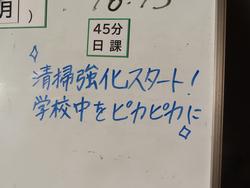 月)
45分
日課
清掃強化スタート!
学校中をピカピカに